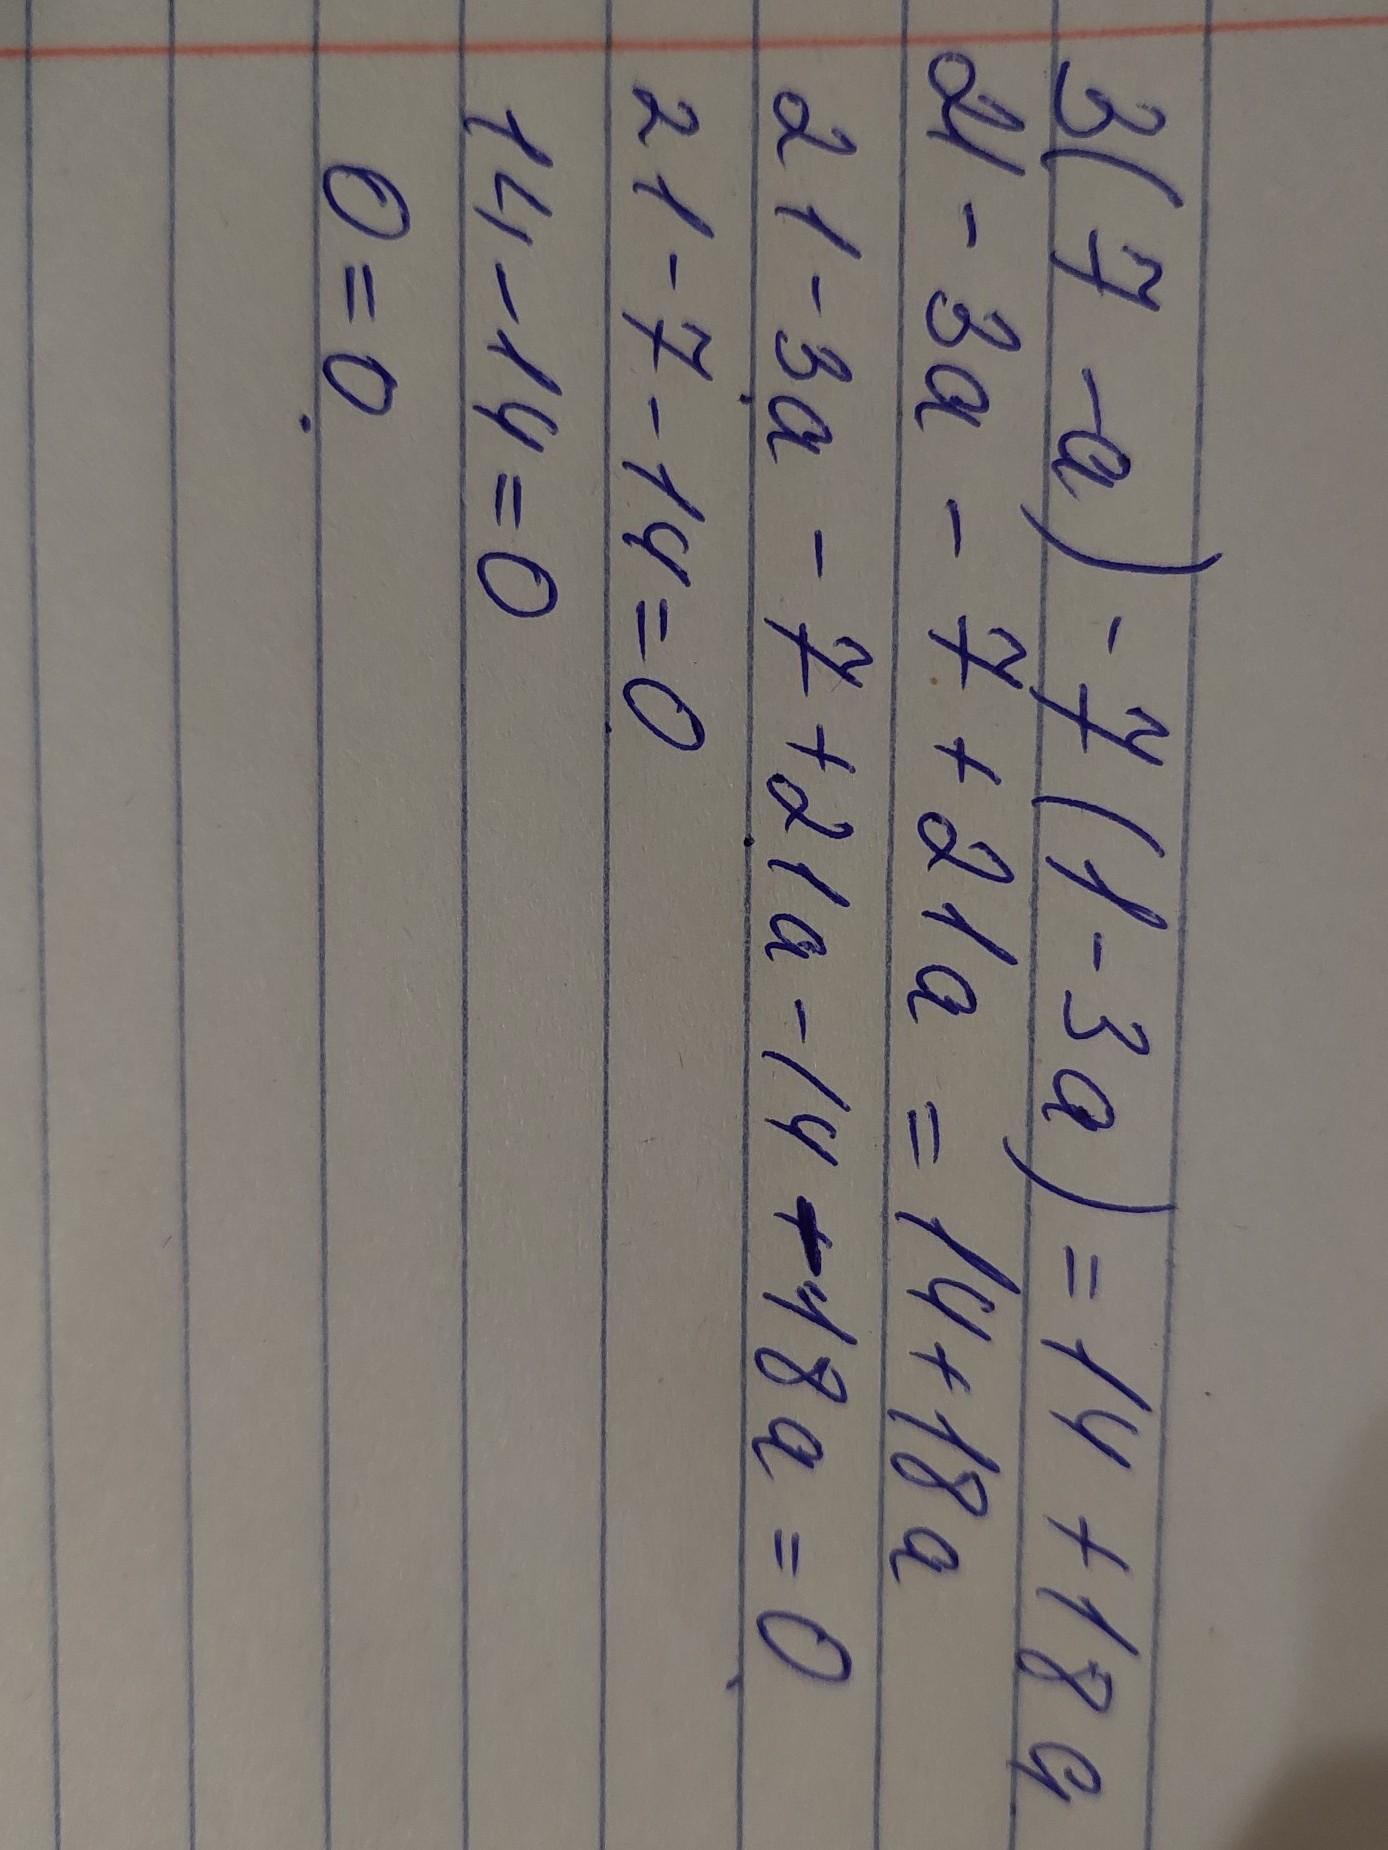 3(7-a)-7(1-3a)=14+18a
21-3a-7+21a=14+18a
21-3a-7+21a-14-18a=0
21-7-14=0
14-14=0
0=0